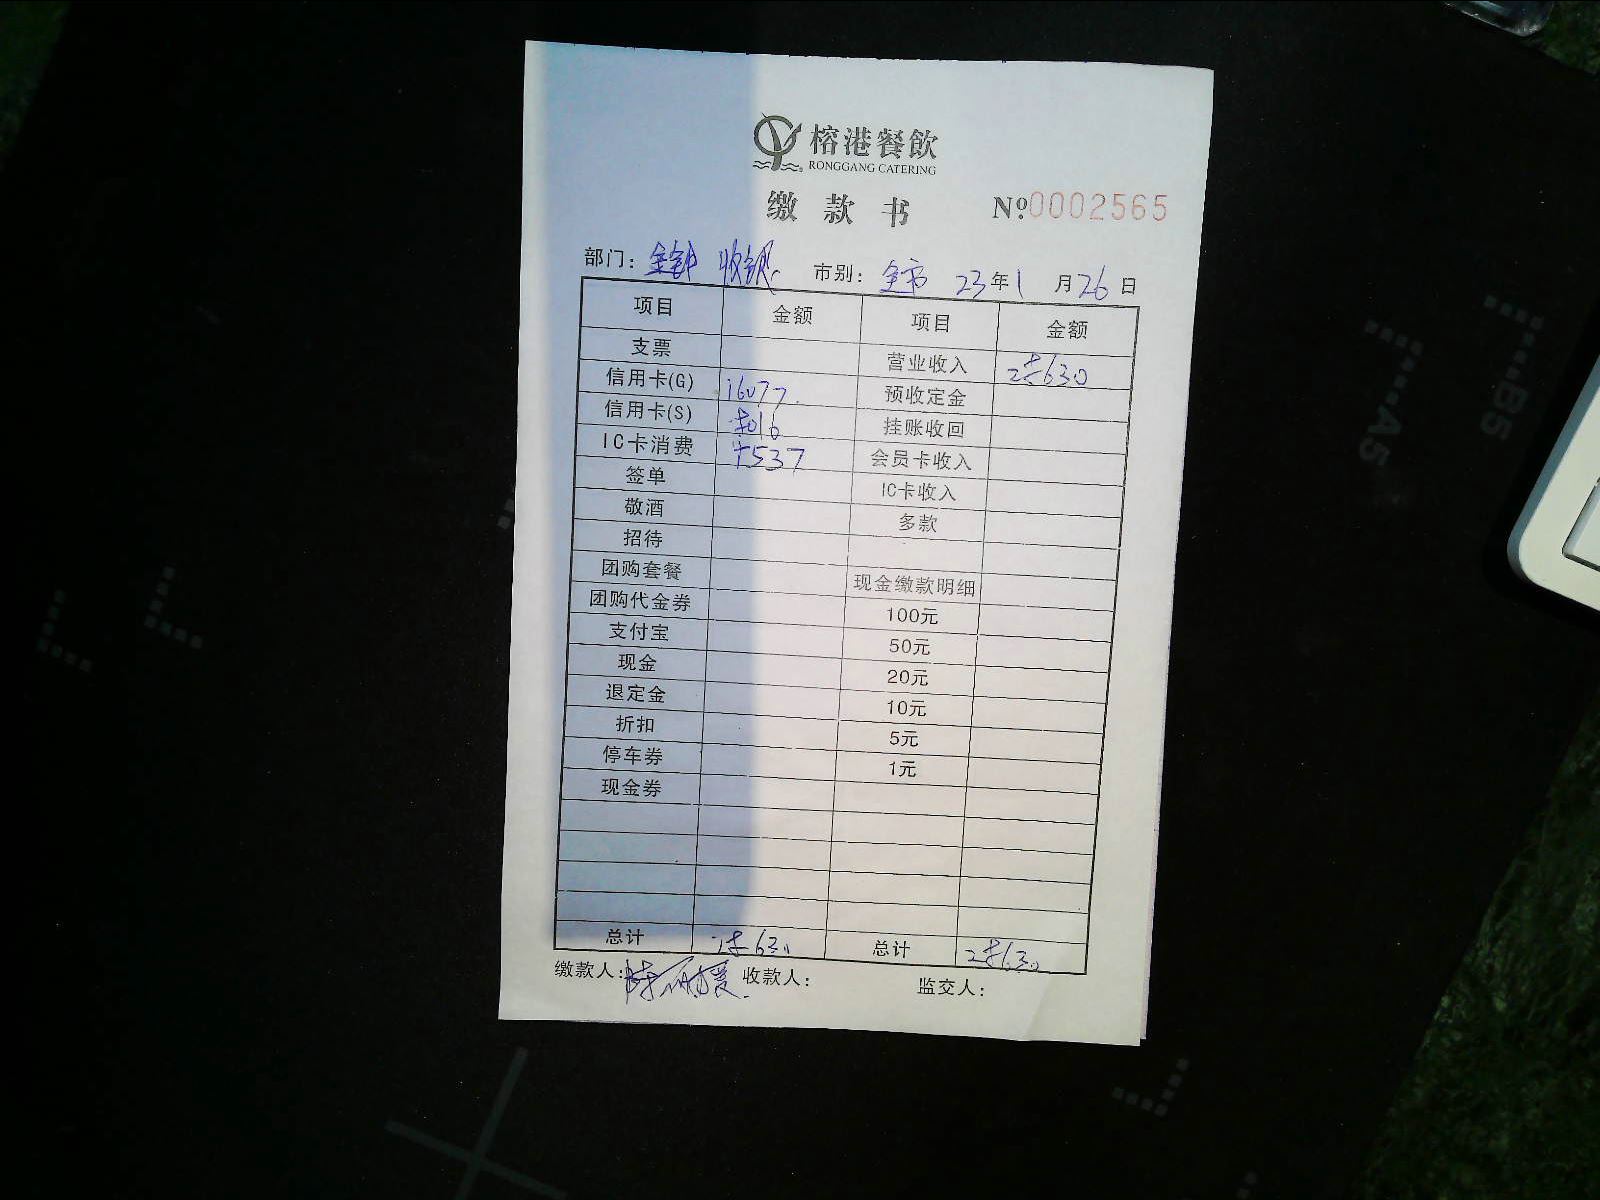 榕港餐飲
RONGGANG CATERING
缴款书 №0002565
部门: 收银 市别: 全市 23年1月26日
项目 金额 项目 金额
支票 营业收入 25630
信用卡(G) 16077 预收定金
信用卡(S) 5016 挂账收回
IC卡消费 4537 会员卡收入
签单 IC卡收入
敬酒 多款
招待
团购套餐 现金缴款明细
团购代金券 100元
支付宝 50元
现金 20元
退定金 10元
折扣 5元
停车券 1元
现金券
总计 25630 总计 25630
缴款人: 收款人: 监交人:
B5
A5